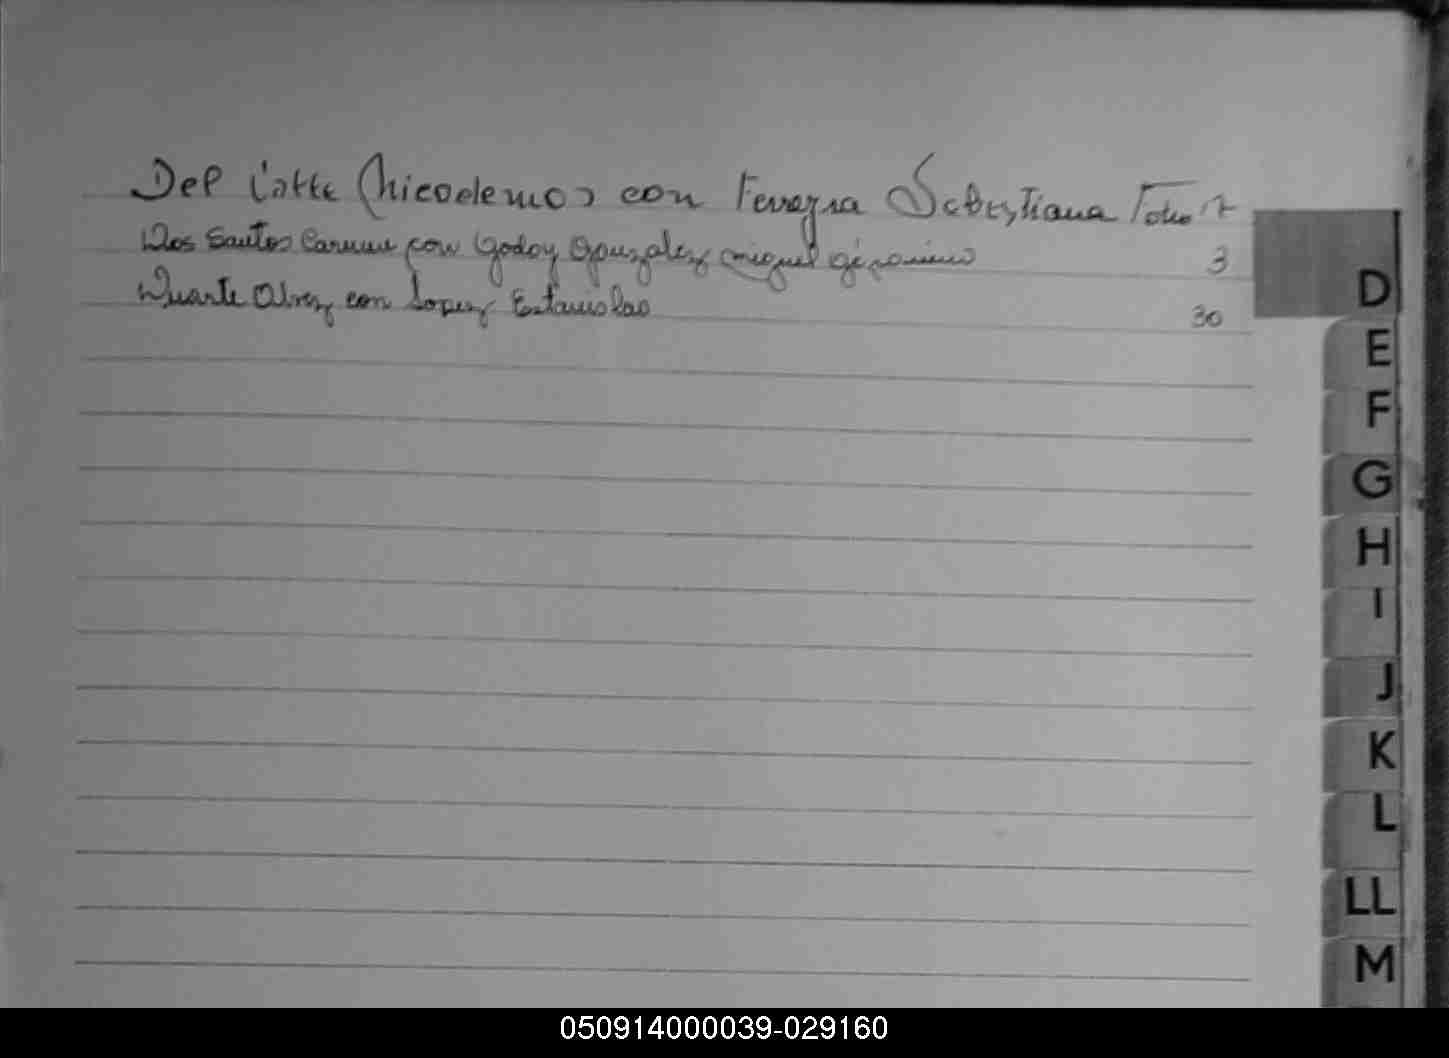 Del Latte Nicodemos con Ferreyra Sebastiana Folio 17
Dos Santos Carmen con Godoy Gonzalez Miguel Géronimo 3
Duarte Alvez con Lopez Estanislao 30
D
E
F
G
H
I
J
K
L
LL
M
050914000039-029160